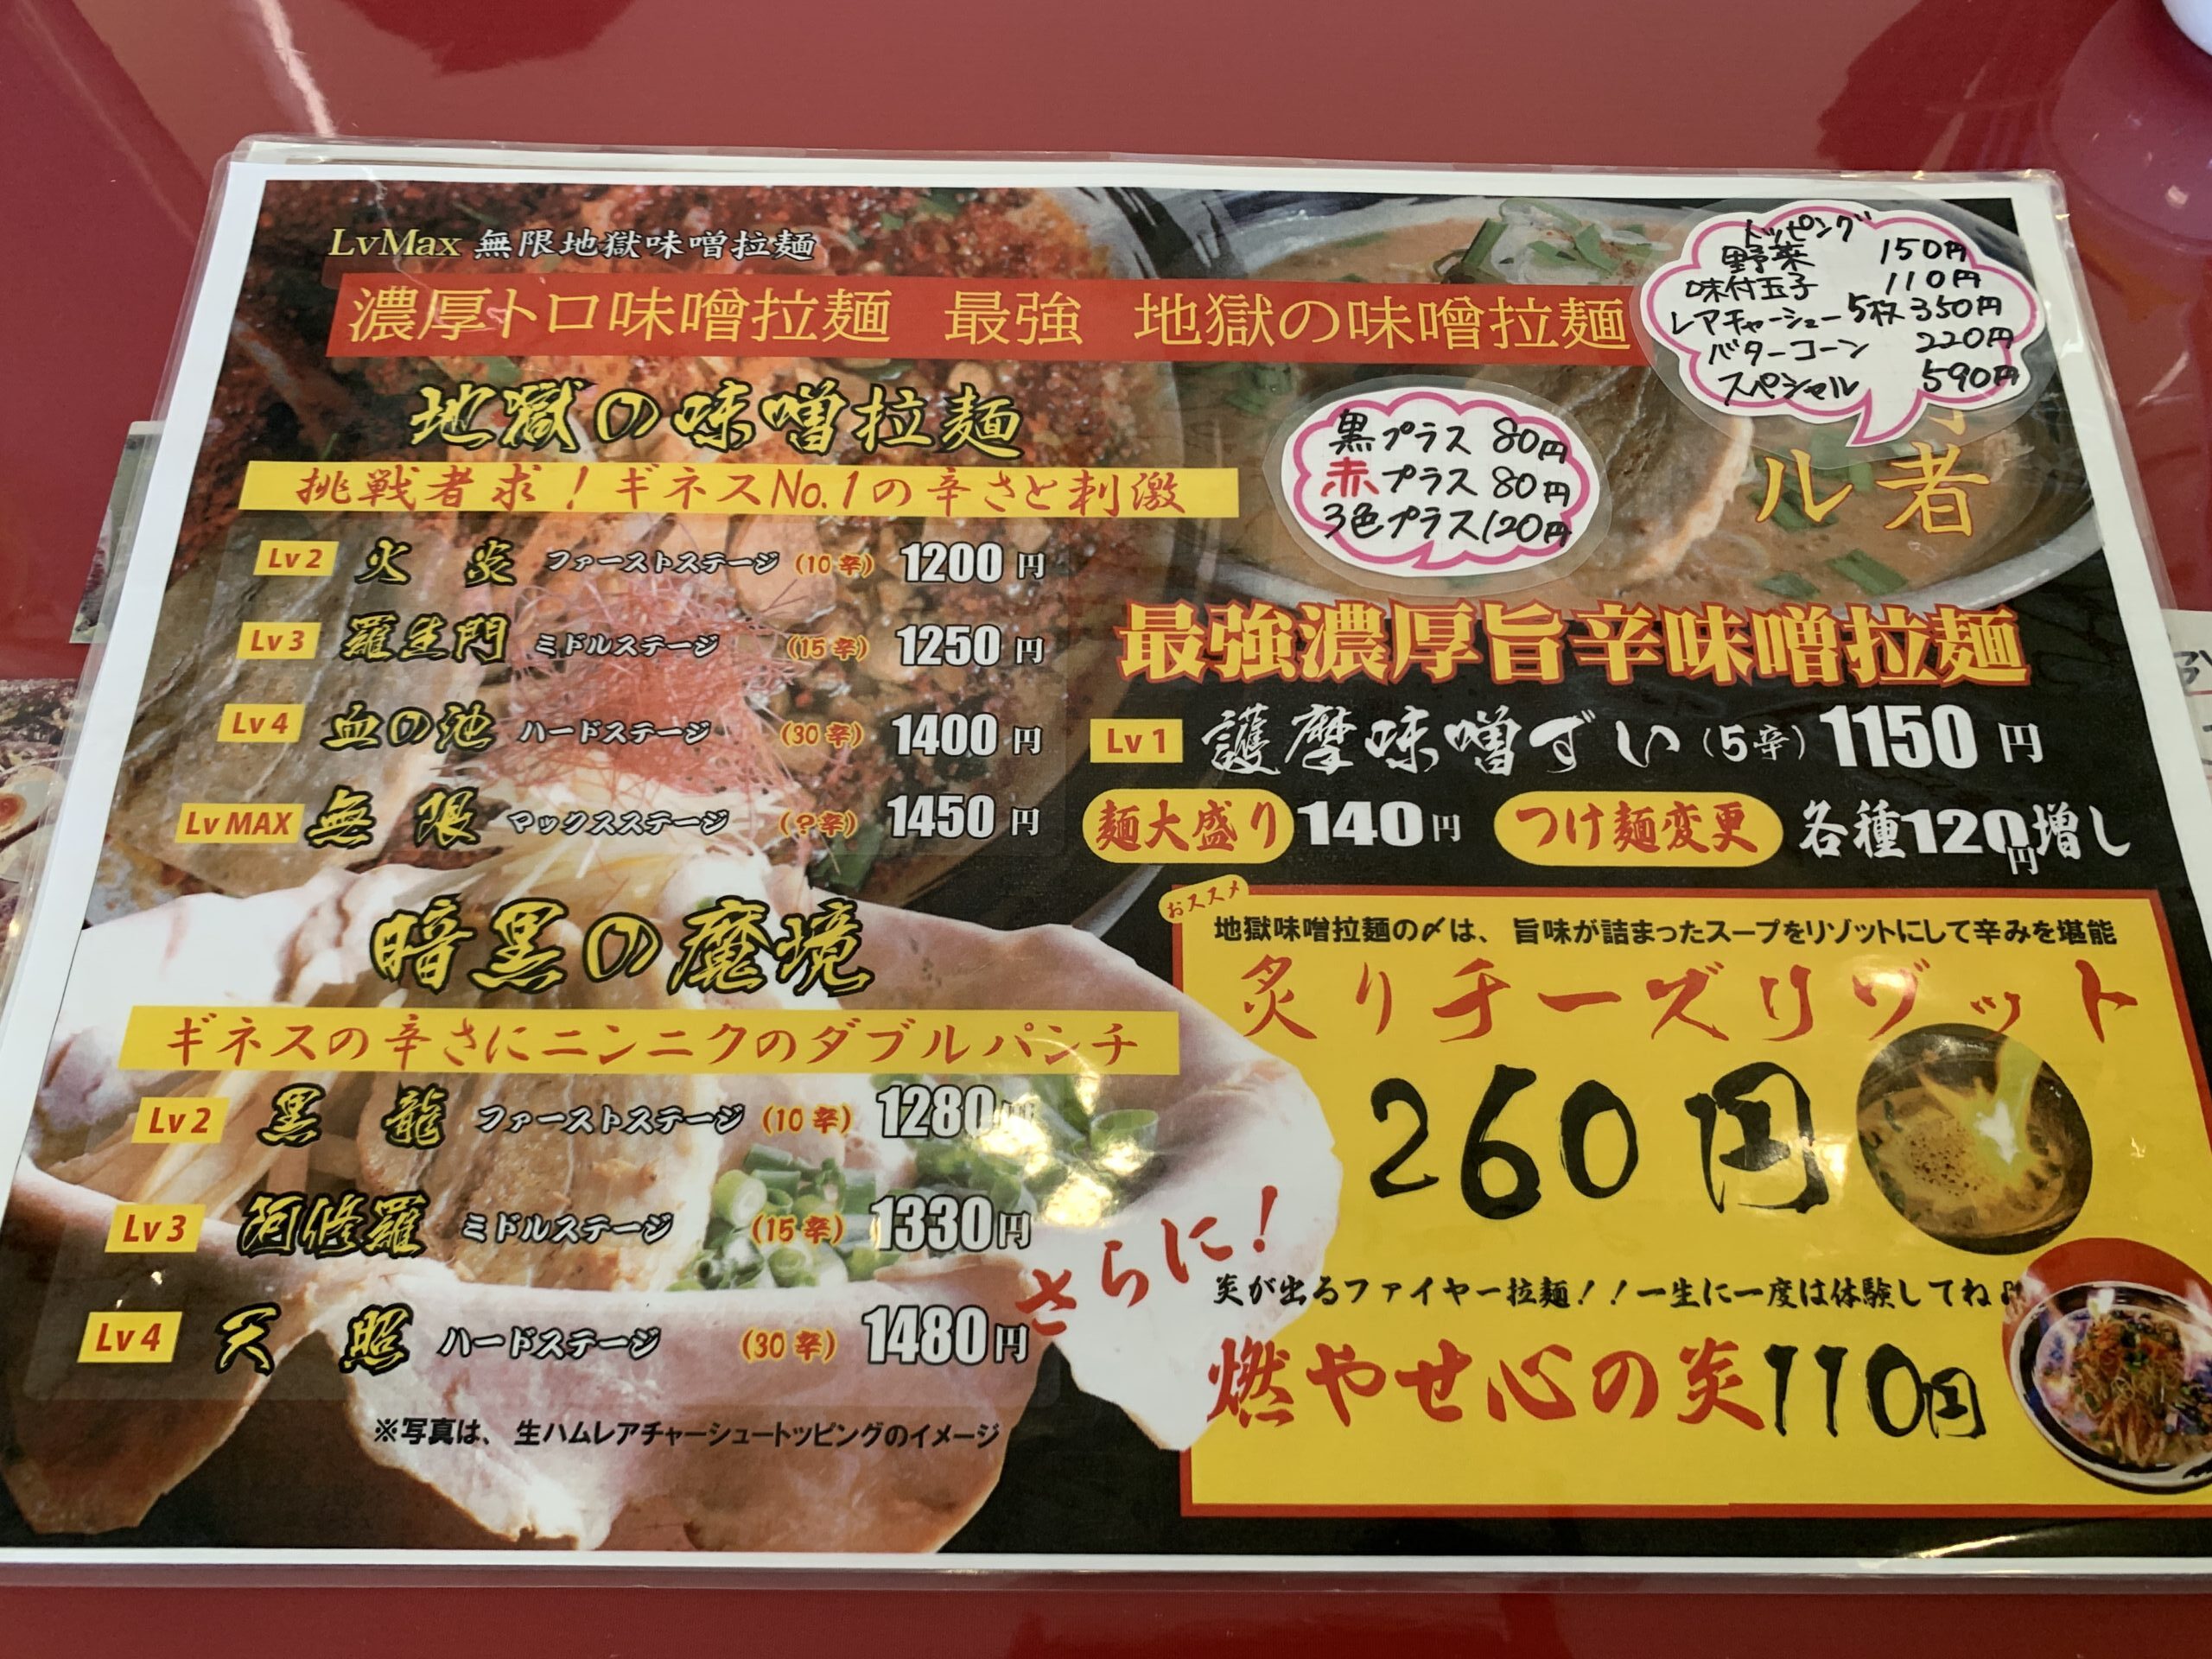 LvMax 無限地獄味噌拉麺
濃厚トロ味噌拉麺 最強 地獄の味噌拉麺
トッピング
野菜 150円
味付玉子 110円
レアチャーシュー5枚 350円
バターコーン 220円
スペシャル 590円
黒プラス 80円
赤プラス 80円
3色プラス120円
ル者
地獄の味噌拉麺
挑戦者求!ギネスNo.1の辛さと刺激
Lv2 火炎 ファーストステージ (10辛) 1200円
Lv3 羅生門 ミドルステージ (15辛) 1250円
Lv4 血の池 ハードステージ (30辛) 1400円
Lv MAX 無限 マックスステージ (?辛) 1450円
暗黒の魔境
ギネスの辛さにニンニクのダブルパンチ
Lv2 黒龍 ファーストステージ (10辛) 1280円
Lv3 阿修羅 ミドルステージ (15辛) 1330円
Lv4 天照 ハードステージ (30辛) 1480円
※写真は、生ハムレアチャーシュートッピングのイメージ
最強濃厚旨辛味噌拉麺
Lv1 護摩味噌ずい(5辛)1150円
麺大盛り 140円 つけ麺変更 各種120円増し
おススメ
地獄味噌拉麺の〆は、旨味が詰まったスープをリゾットにして辛みを堪能
炙りチーズリゾット
260円
さらに!
炎が出るファイヤー拉麺!!一生に一度は体験してね♫
燃やせ心の炎110円